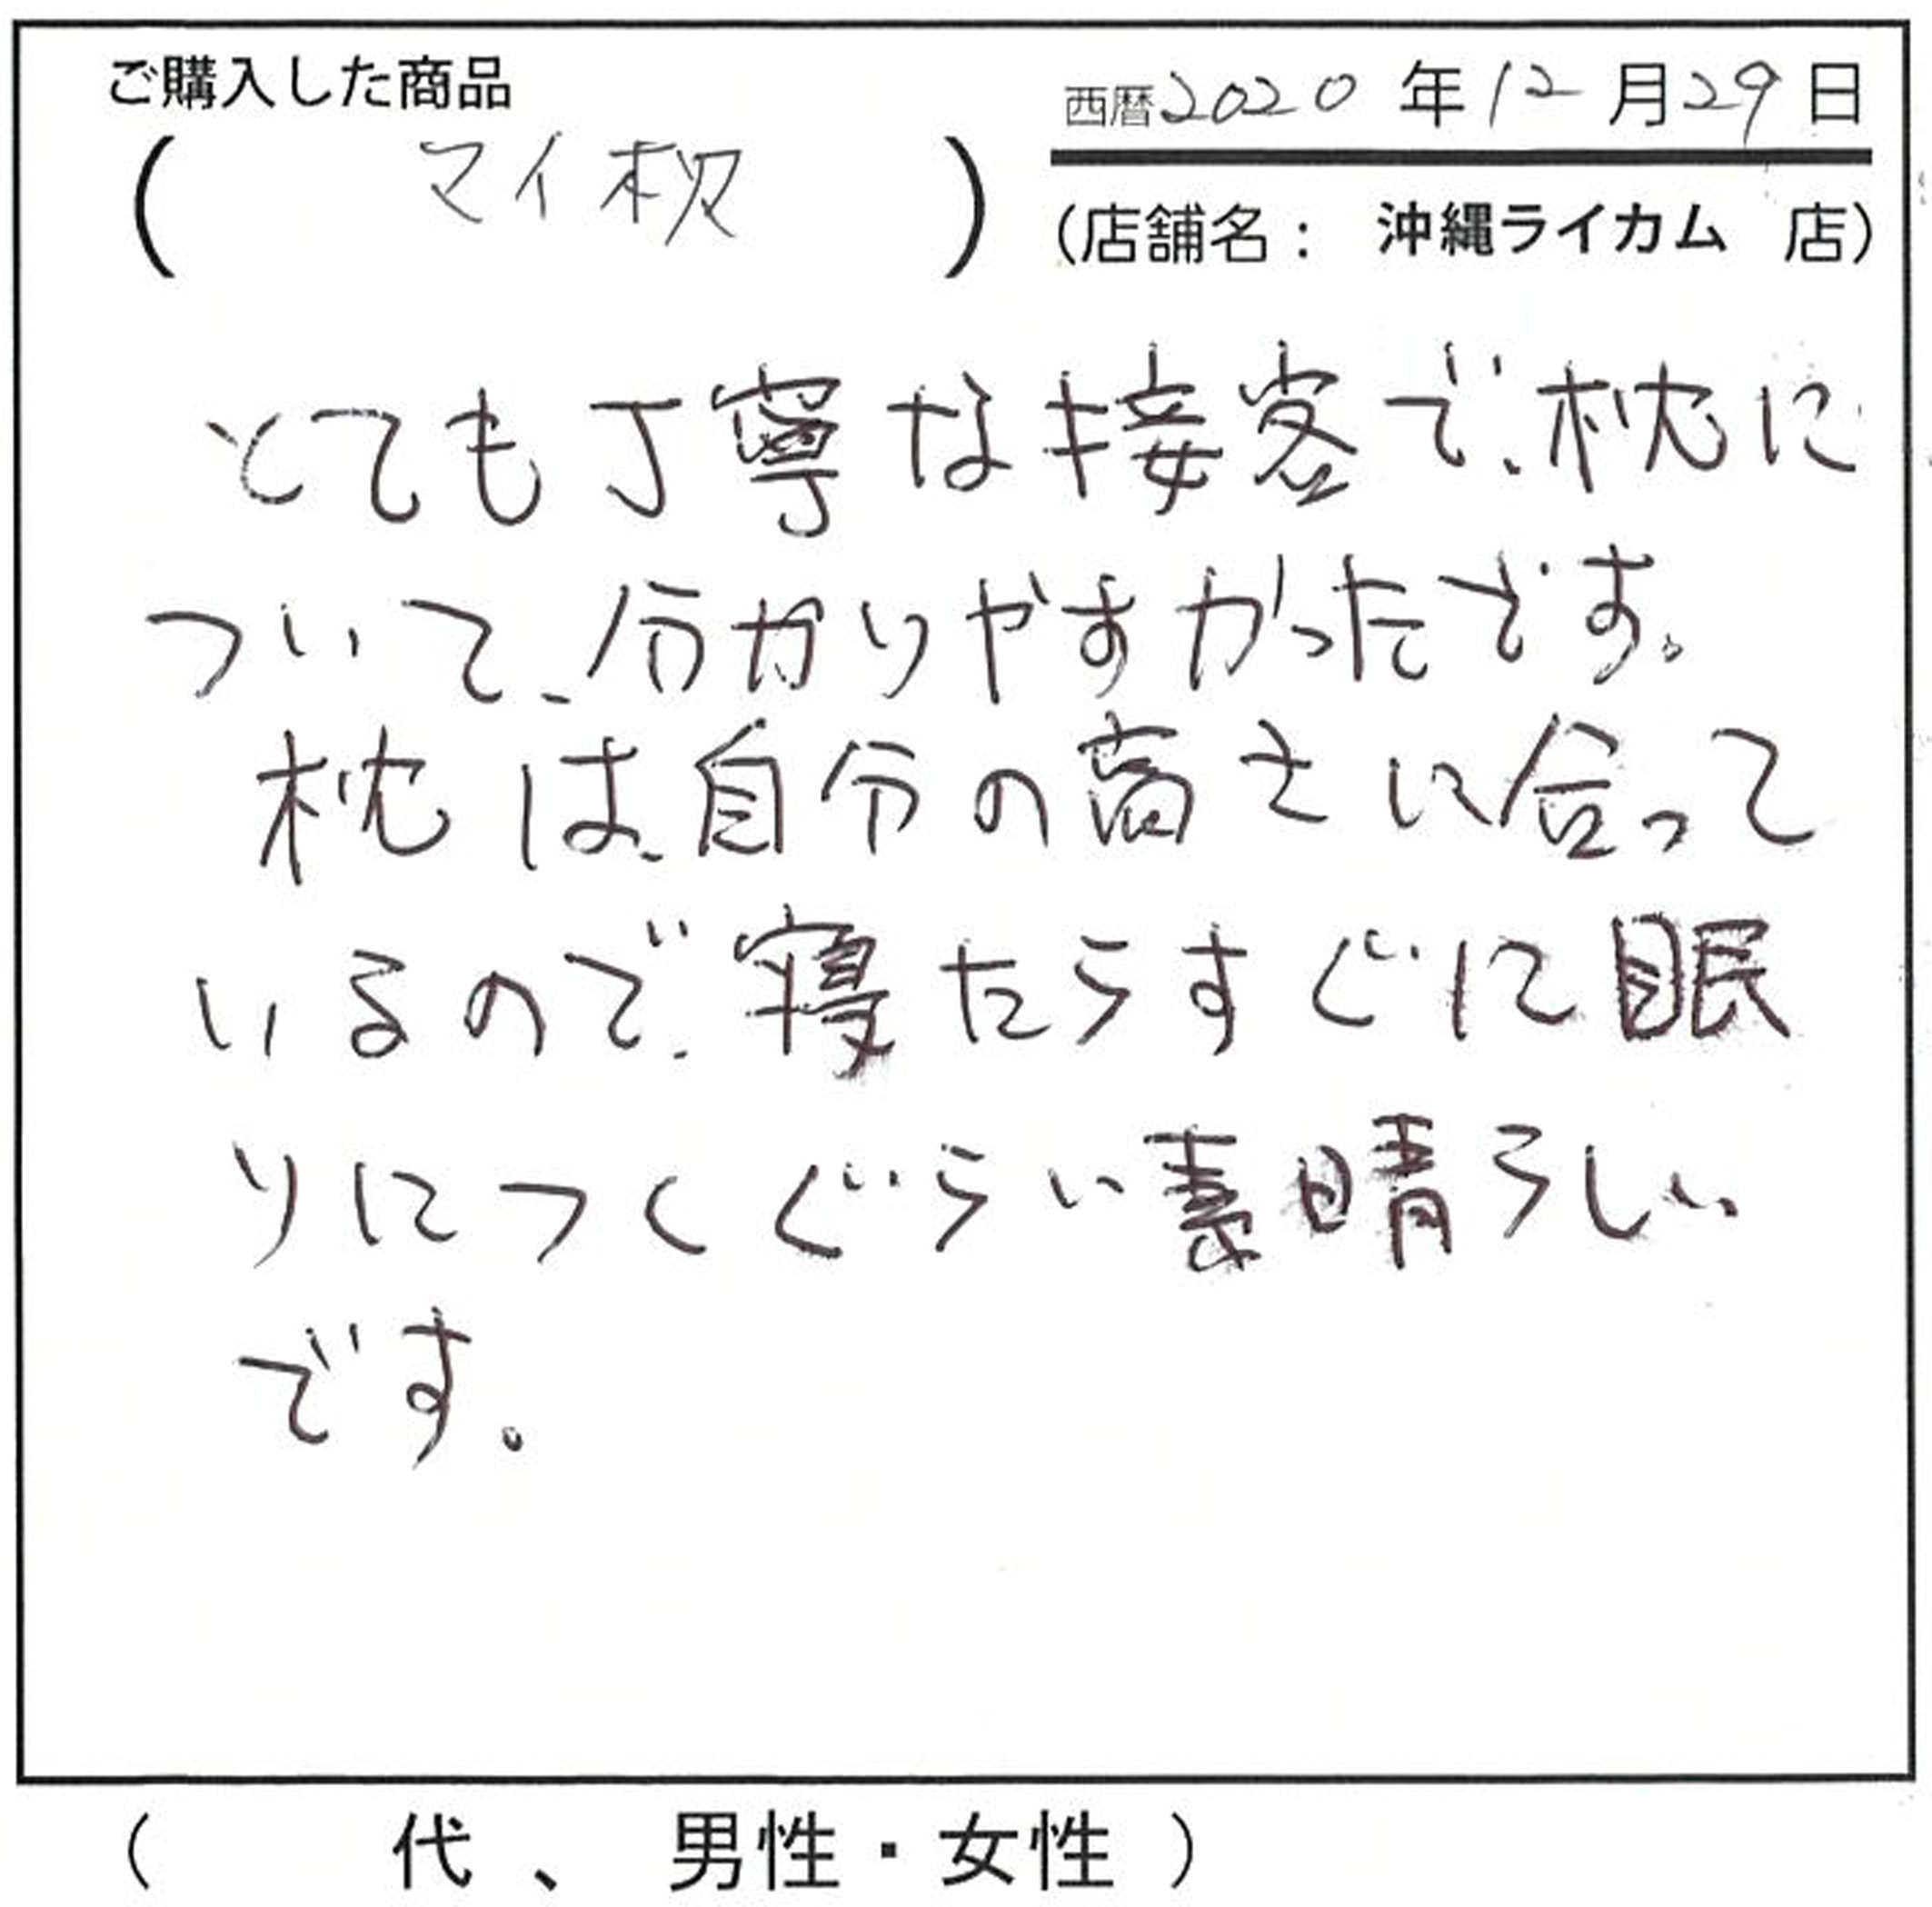 ご購入した商品
西暦2020年12月29日
( マイ枕 )
(店舗名： 沖縄ライカム 店)
とても丁寧な接客で、枕に
ついて、分かりやすかったです。
枕は、自分の高さに合って
いるので、寝たらすぐに眠
りにつくぐらい素晴らしい
です。
( 代、 男性・女性 )